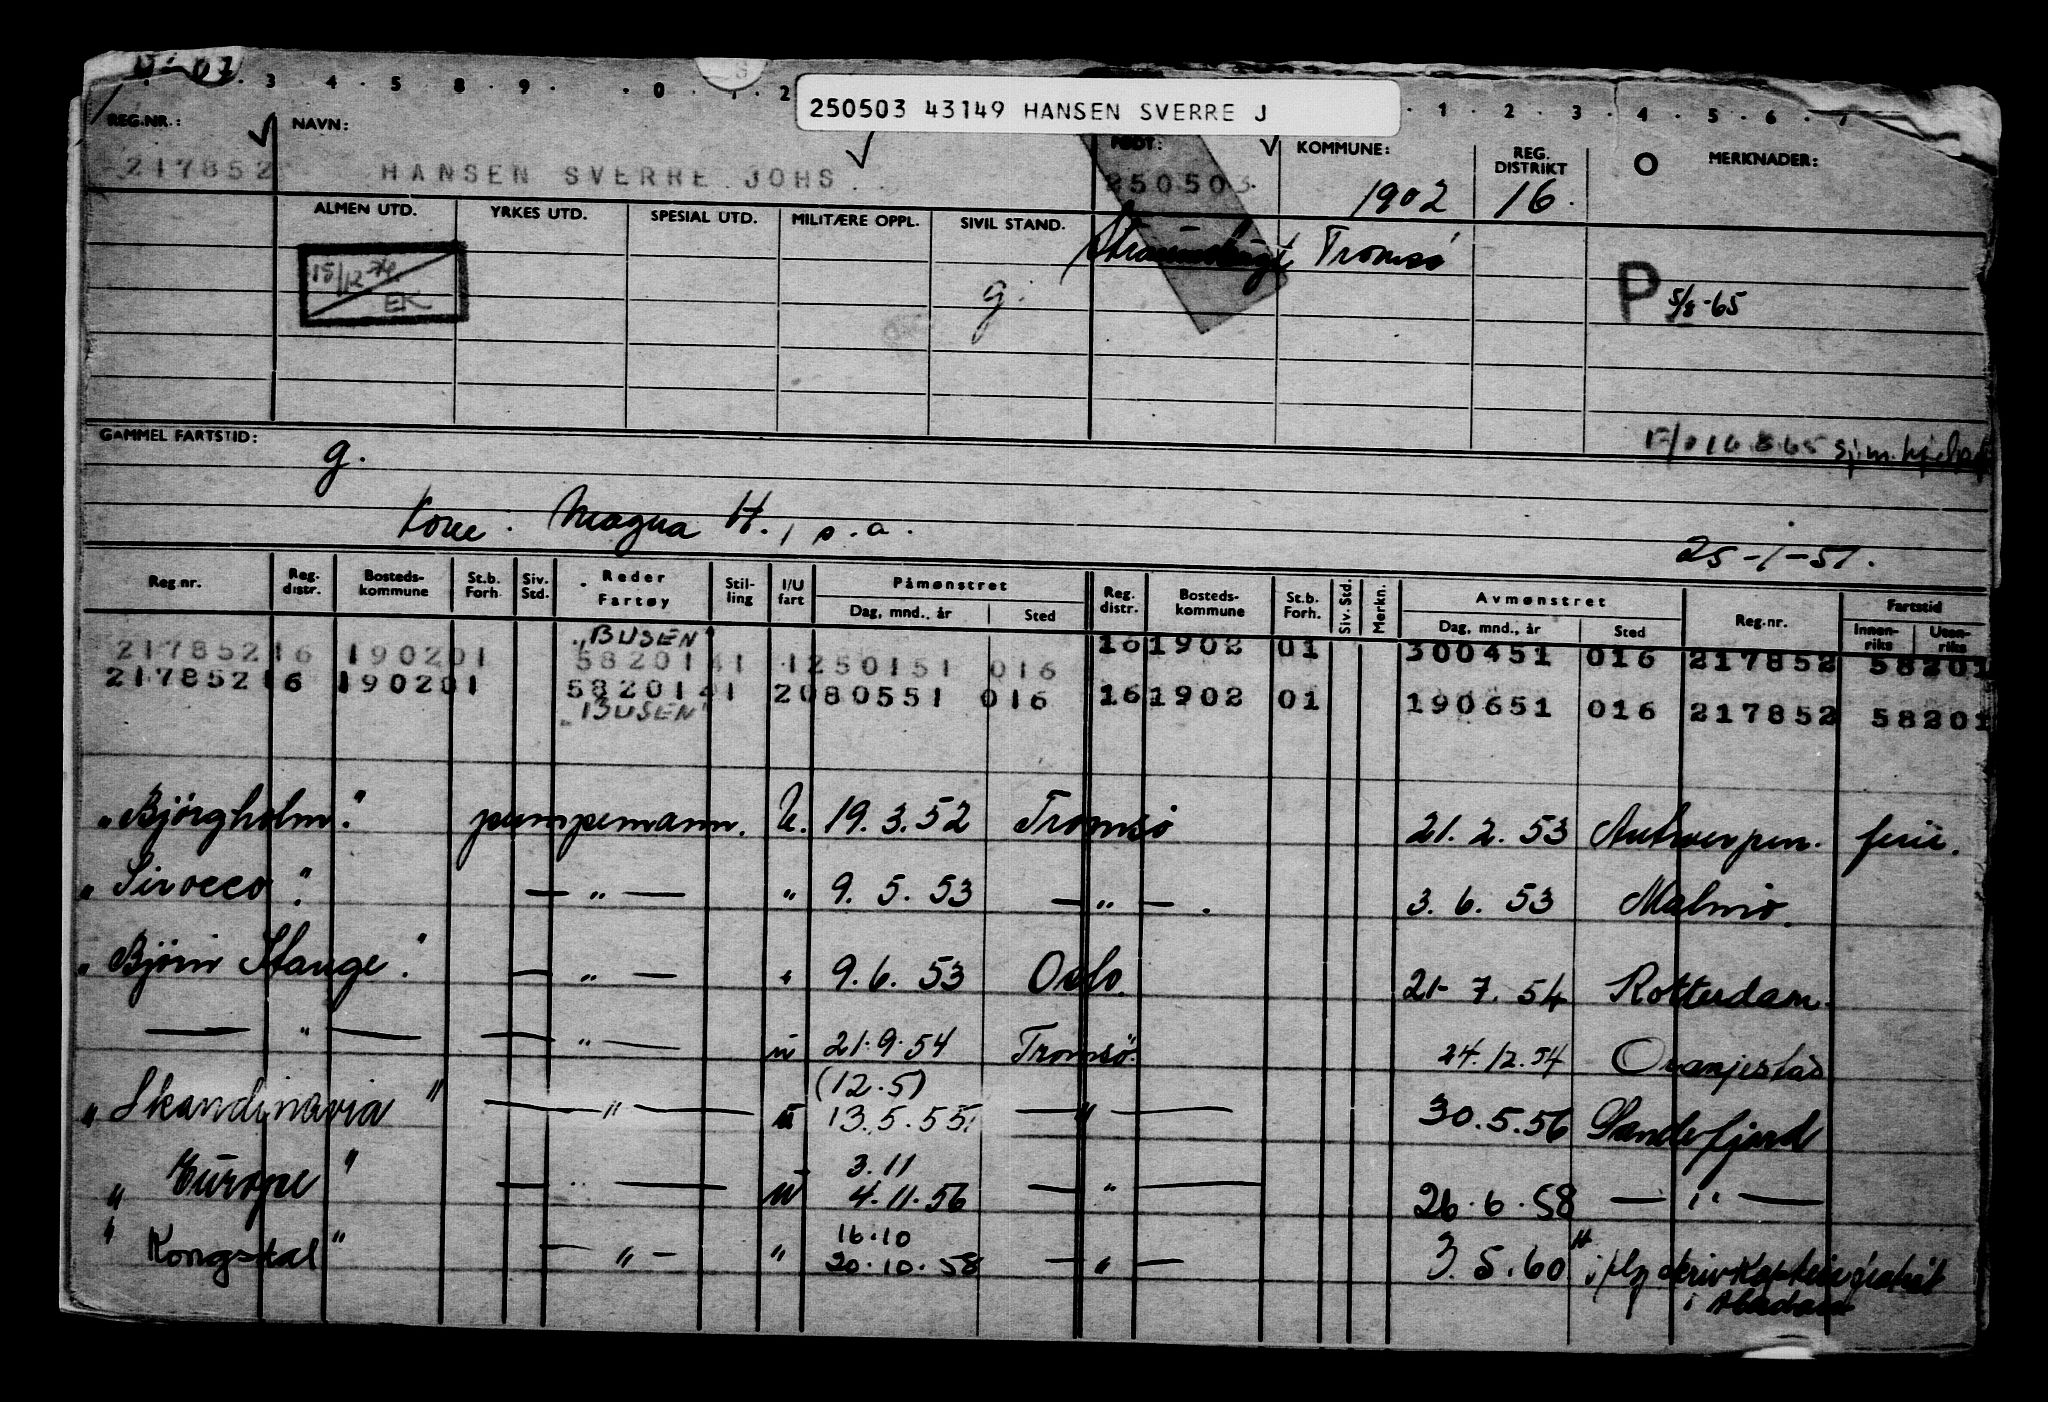 250503 43149 HANSEN SVERRE J
3 4 5 8 9 0 2 1 2 3 4 5 6 7
REG.NR.: NAVN: FØDT: KOMMUNE: REG. DISTRIKT MERKNADER:
217852 HANSEN SVERRE JOHS. 250503. 1902 16.
ALMEN UTD. YRKES UTD. SPESIAL UTD. MILITÆRE OPPL. SIVIL STAND.
Tromsø
15/12-74 EK
g.
P 5/8-65
GAMMEL FARTSTID:
g.
Kone: Magna H., s.a.
25-1-51.
Reg.nr. Reg. distr. Bosteds-kommune St.b. Forh. Siv. Std. Reder Fartøy Stil-ling I/U fart Påmønstret Dag, mnd., år Sted Reg. distr. Bosteds-kommune St.b. Forh. Siv. Std. Merkn. Avmønstret Dag, mnd., år Sted Reg.nr. Fartstid Innen-riks Uten-riks
"BUSEN"
217852 16 1902 01 58201 41 1 250151 016 16 1902 01 300451 016 217852 58201
217852 16 1902 01 58201 41 2 080551 016 16 1902 01 190651 016 217852 58201
"BUSEN"
"Bjørgholm". pumpemann. U. 19.3.52 Tromsø 21.2.53 Antwerpen. ferie.
"Sirocco". — " — " 9.5.53 — " — . 3.6.53 Malmø.
"Bjørn Stange". — " — " 9.6.53 Oslo. 21-7.54 Rotterdam.
— " — — " — u 21.9.54 Tromsø. 24.12.54 Oranjestad
(12.5)
"Skandinavia" — " — u 13.5.55. — " — 30.5.56 Sandefjord
3.11
"Europe" — " — u 4.11.56 — " — 26.6.58 — " —
16.10
"Kongsdal" — " — " 20.10.58 — " — 3.5.60
i Abadan